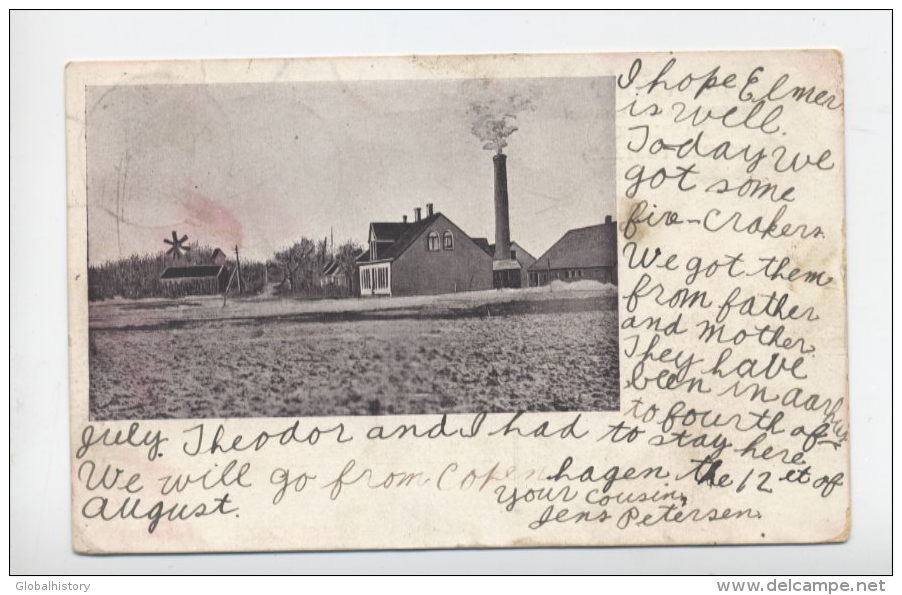 I hope Elmer
is well.
Today we
got some
fire-Crakers.
We got them
from father
and mother.
They have
been in aarhus
to fourth of
july. Theodor and I had to stay here
We will go from Copenhagen the 12 et of
August.
Your Cousin,
Jens Petersen.
Globalhistory
http://www.delcampe.net